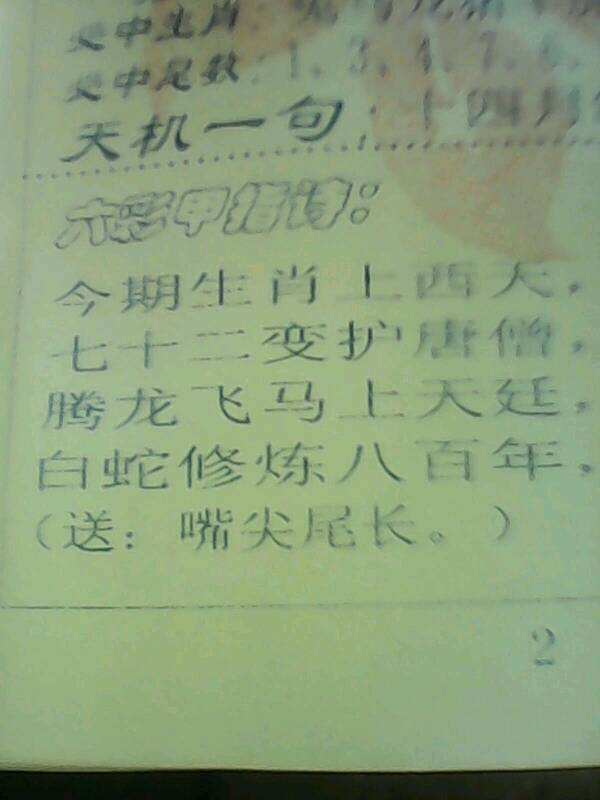 中生肖:
中尾数:1.3.4.7.6.
天机一句:十四月
六彩甲指诗:
今期生肖上西天,
七十二变护唐僧,
腾龙飞马上天廷,
白蛇修炼八百年,
(送:嘴尖尾长。)
2